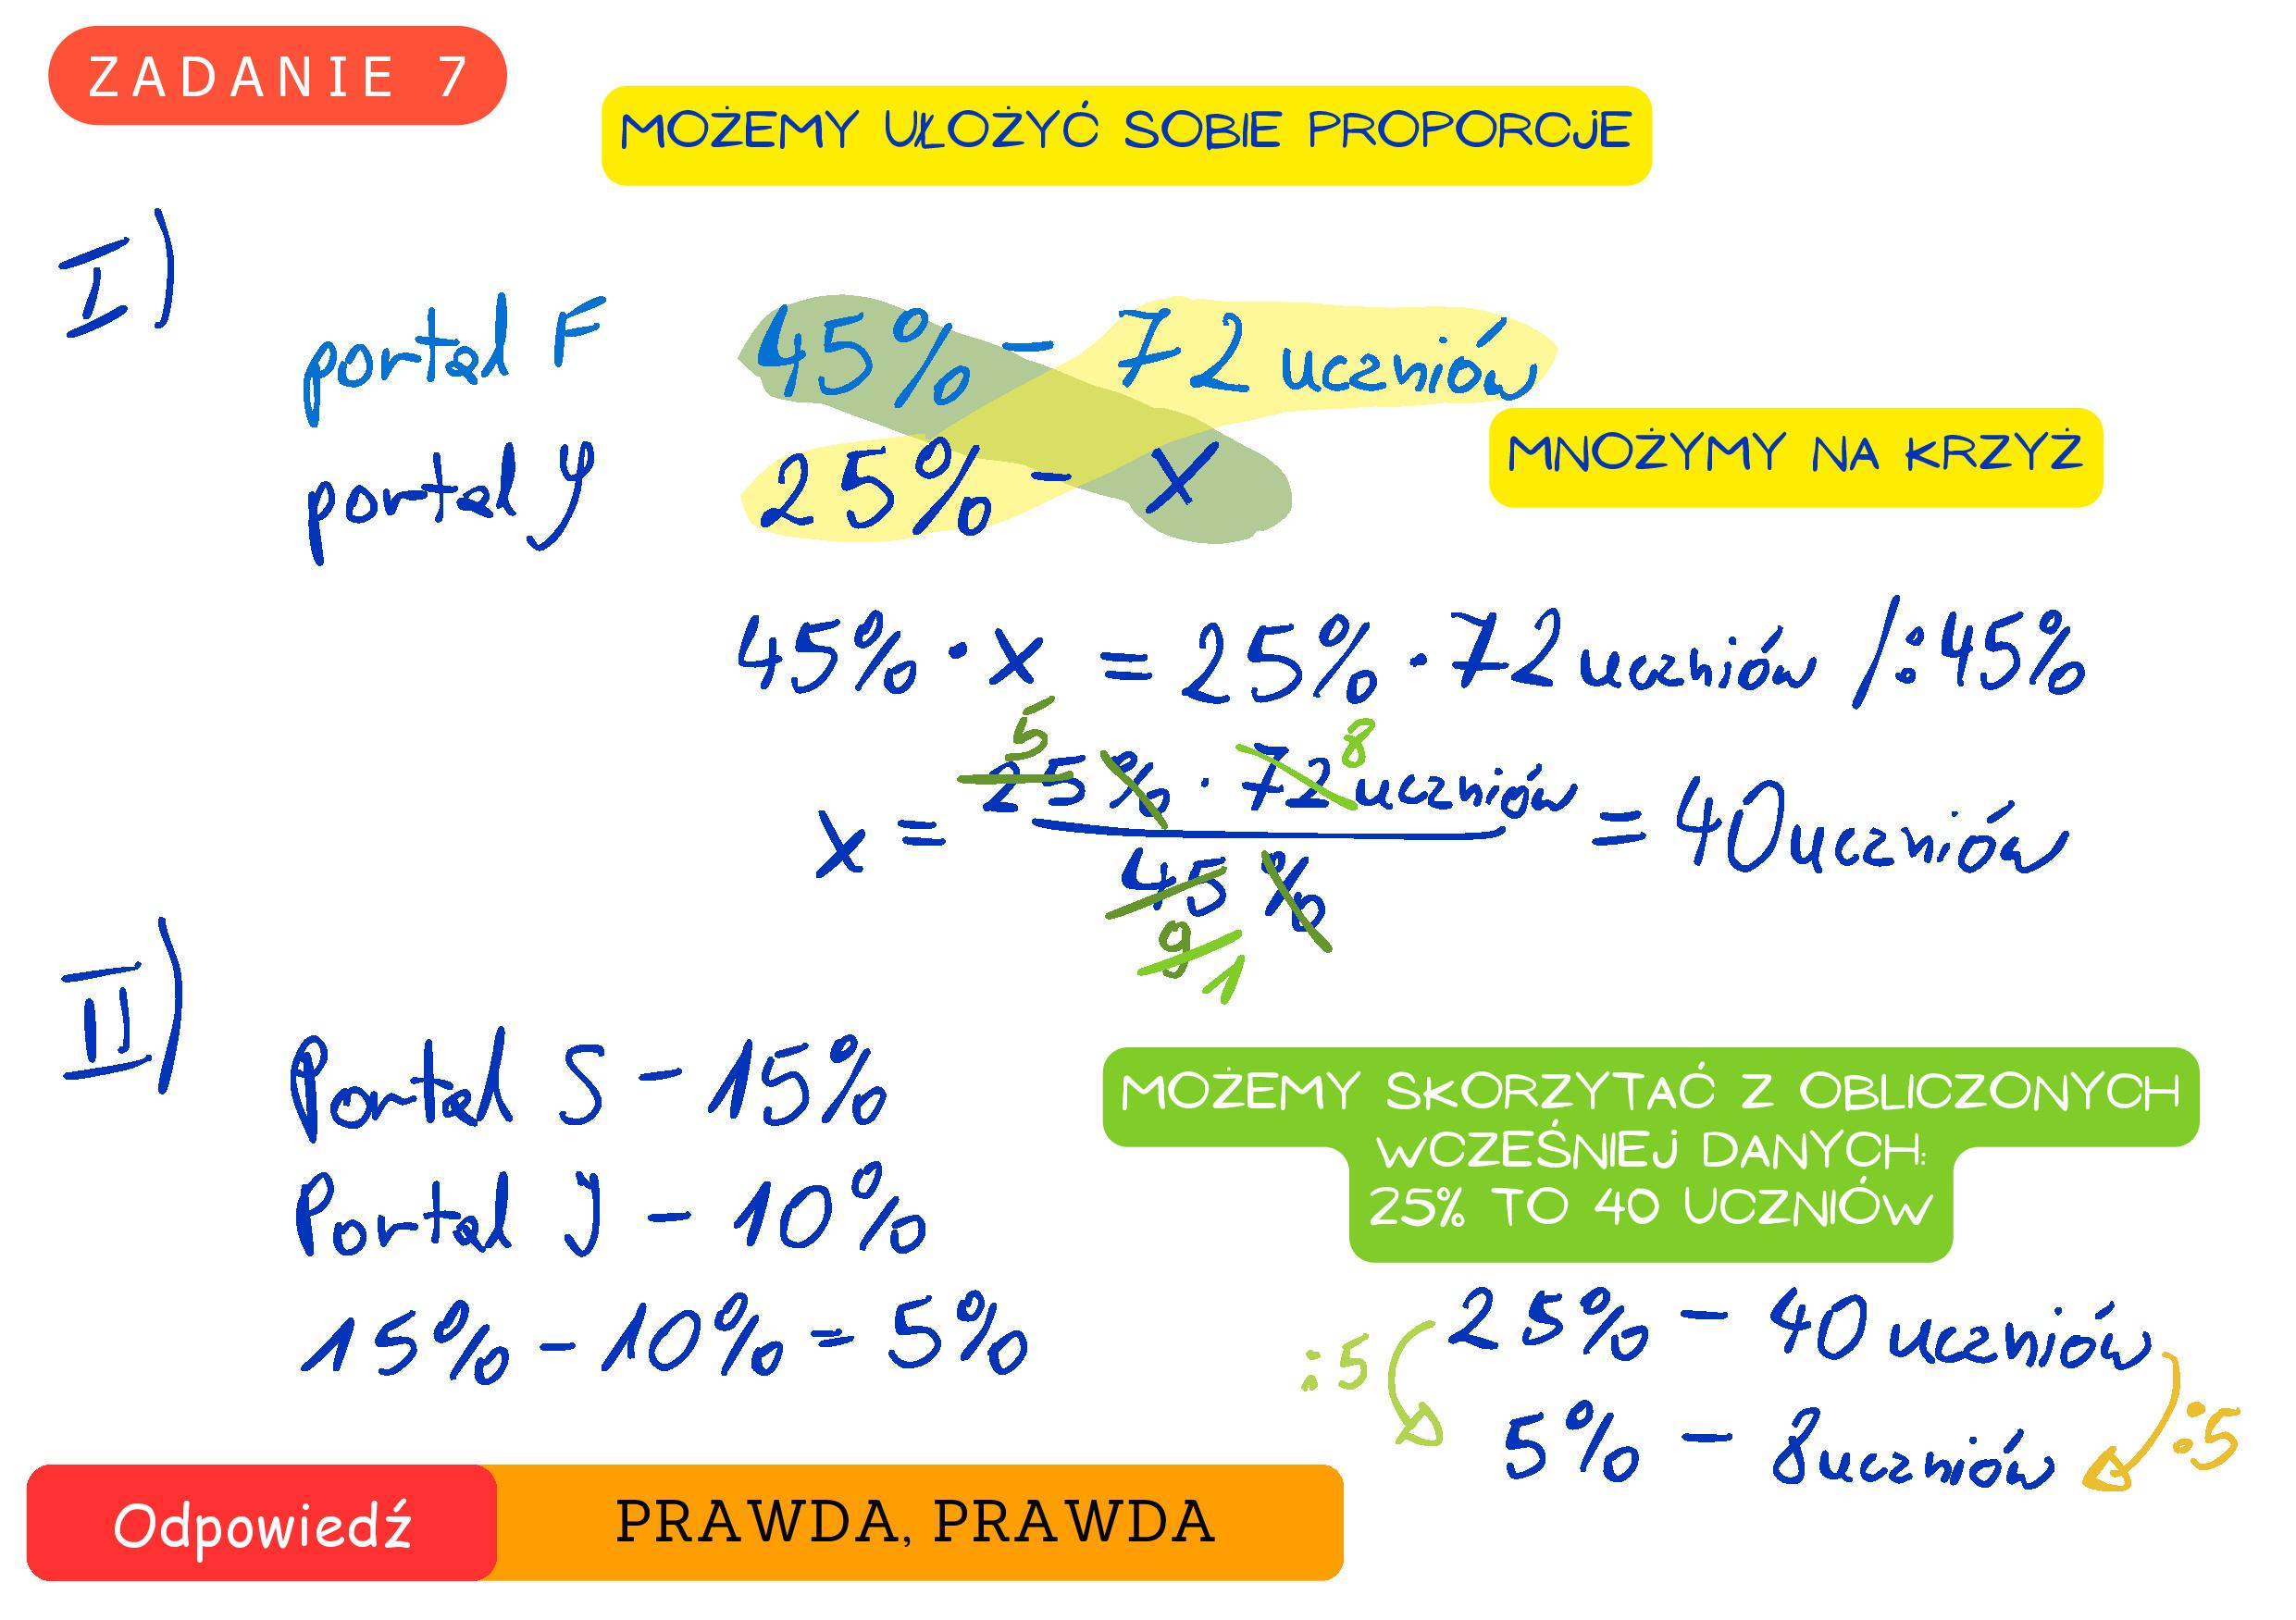 ZADANIE 7
MOŻEMY UŁOŻYĆ SOBIE PROPORCJE
I)
portal F 45% - 72 uczniów
portal Y 25% - x
MNOŻYMY NA KRZYŻ
45% · x = 25% · 72 uczniów /:45%
5 8
x = 25% · 72 uczniów / 45% = 40 uczniów
9 1
II)
Portal S - 15%
Portal J - 10%
15% - 10% = 5%
MOŻEMY SKORZYTAĆ Z OBLICZONYCH
WCZEŚNIEJ DANYCH:
25% TO 40 UCZNIÓW
25% - 40 uczniów
:5 :5
5% - 8 uczniów
Odpowiedź PRAWDA, PRAWDA